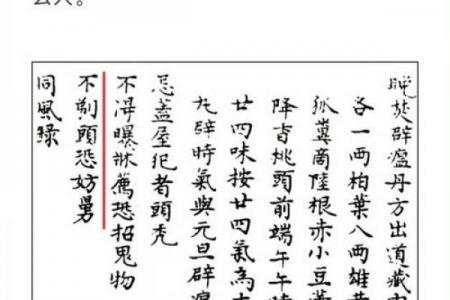 人。
晚焚辟瘟丹方出道藏
各一兩柏葉八兩雄
狐糞商陸根赤小豆
降香桃頭前端午午時
廿四味按廿四氣為
丸辟時氣與元旦辟瘟
忌蓋屋犯者頭禿
不淂曝牀薦恐招鬼物
不剃頭恐妨舅
同風録